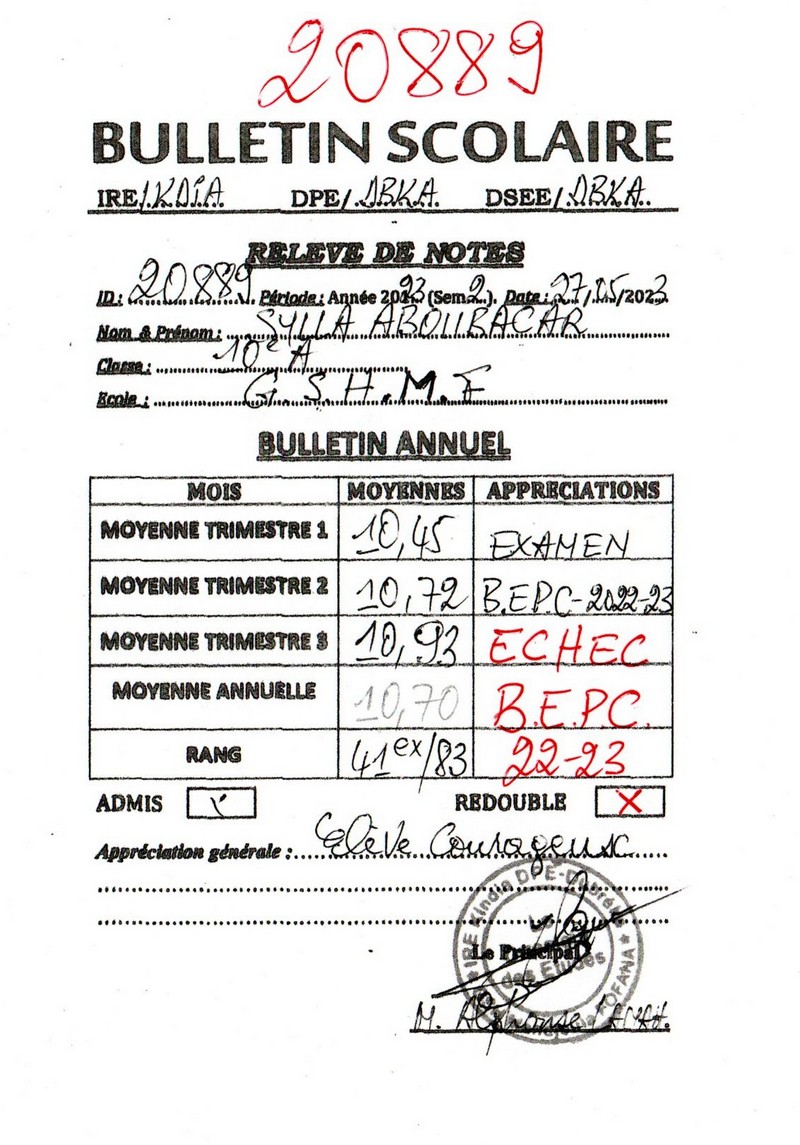 20889
BULLETIN SCOLAIRE
IRE/.KDIA. DPE/.DBKA. DSEE/.DBKA.
RELEVE DE NOTES
ID: 20889 Période: Année 2023 (Sem 2.). Date: 27/05/2023
Nom & Prénom: SYLLA ABOUBACAR
Classe: 10e A
Ecole: G.S.H.M.F
BULLETIN ANNUEL
MOIS MOYENNES APPRECIATIONS
MOYENNE TRIMESTRE 1 10,45 EXAMEN
MOYENNE TRIMESTRE 2 10,72 B.E.P.C-2022-23
MOYENNE TRIMESTRE 3 10,93 ECHEC
MOYENNE ANNUELLE 10,70 B.E.P.C.
RANG 41ex/83 22-23
ADMIS REDOUBLE X
Appréciation générale: Elève Courageux
IRE Kindia DPE-Dubréka
des Etudes
FOFANA
Le Principal
M. Alphonse